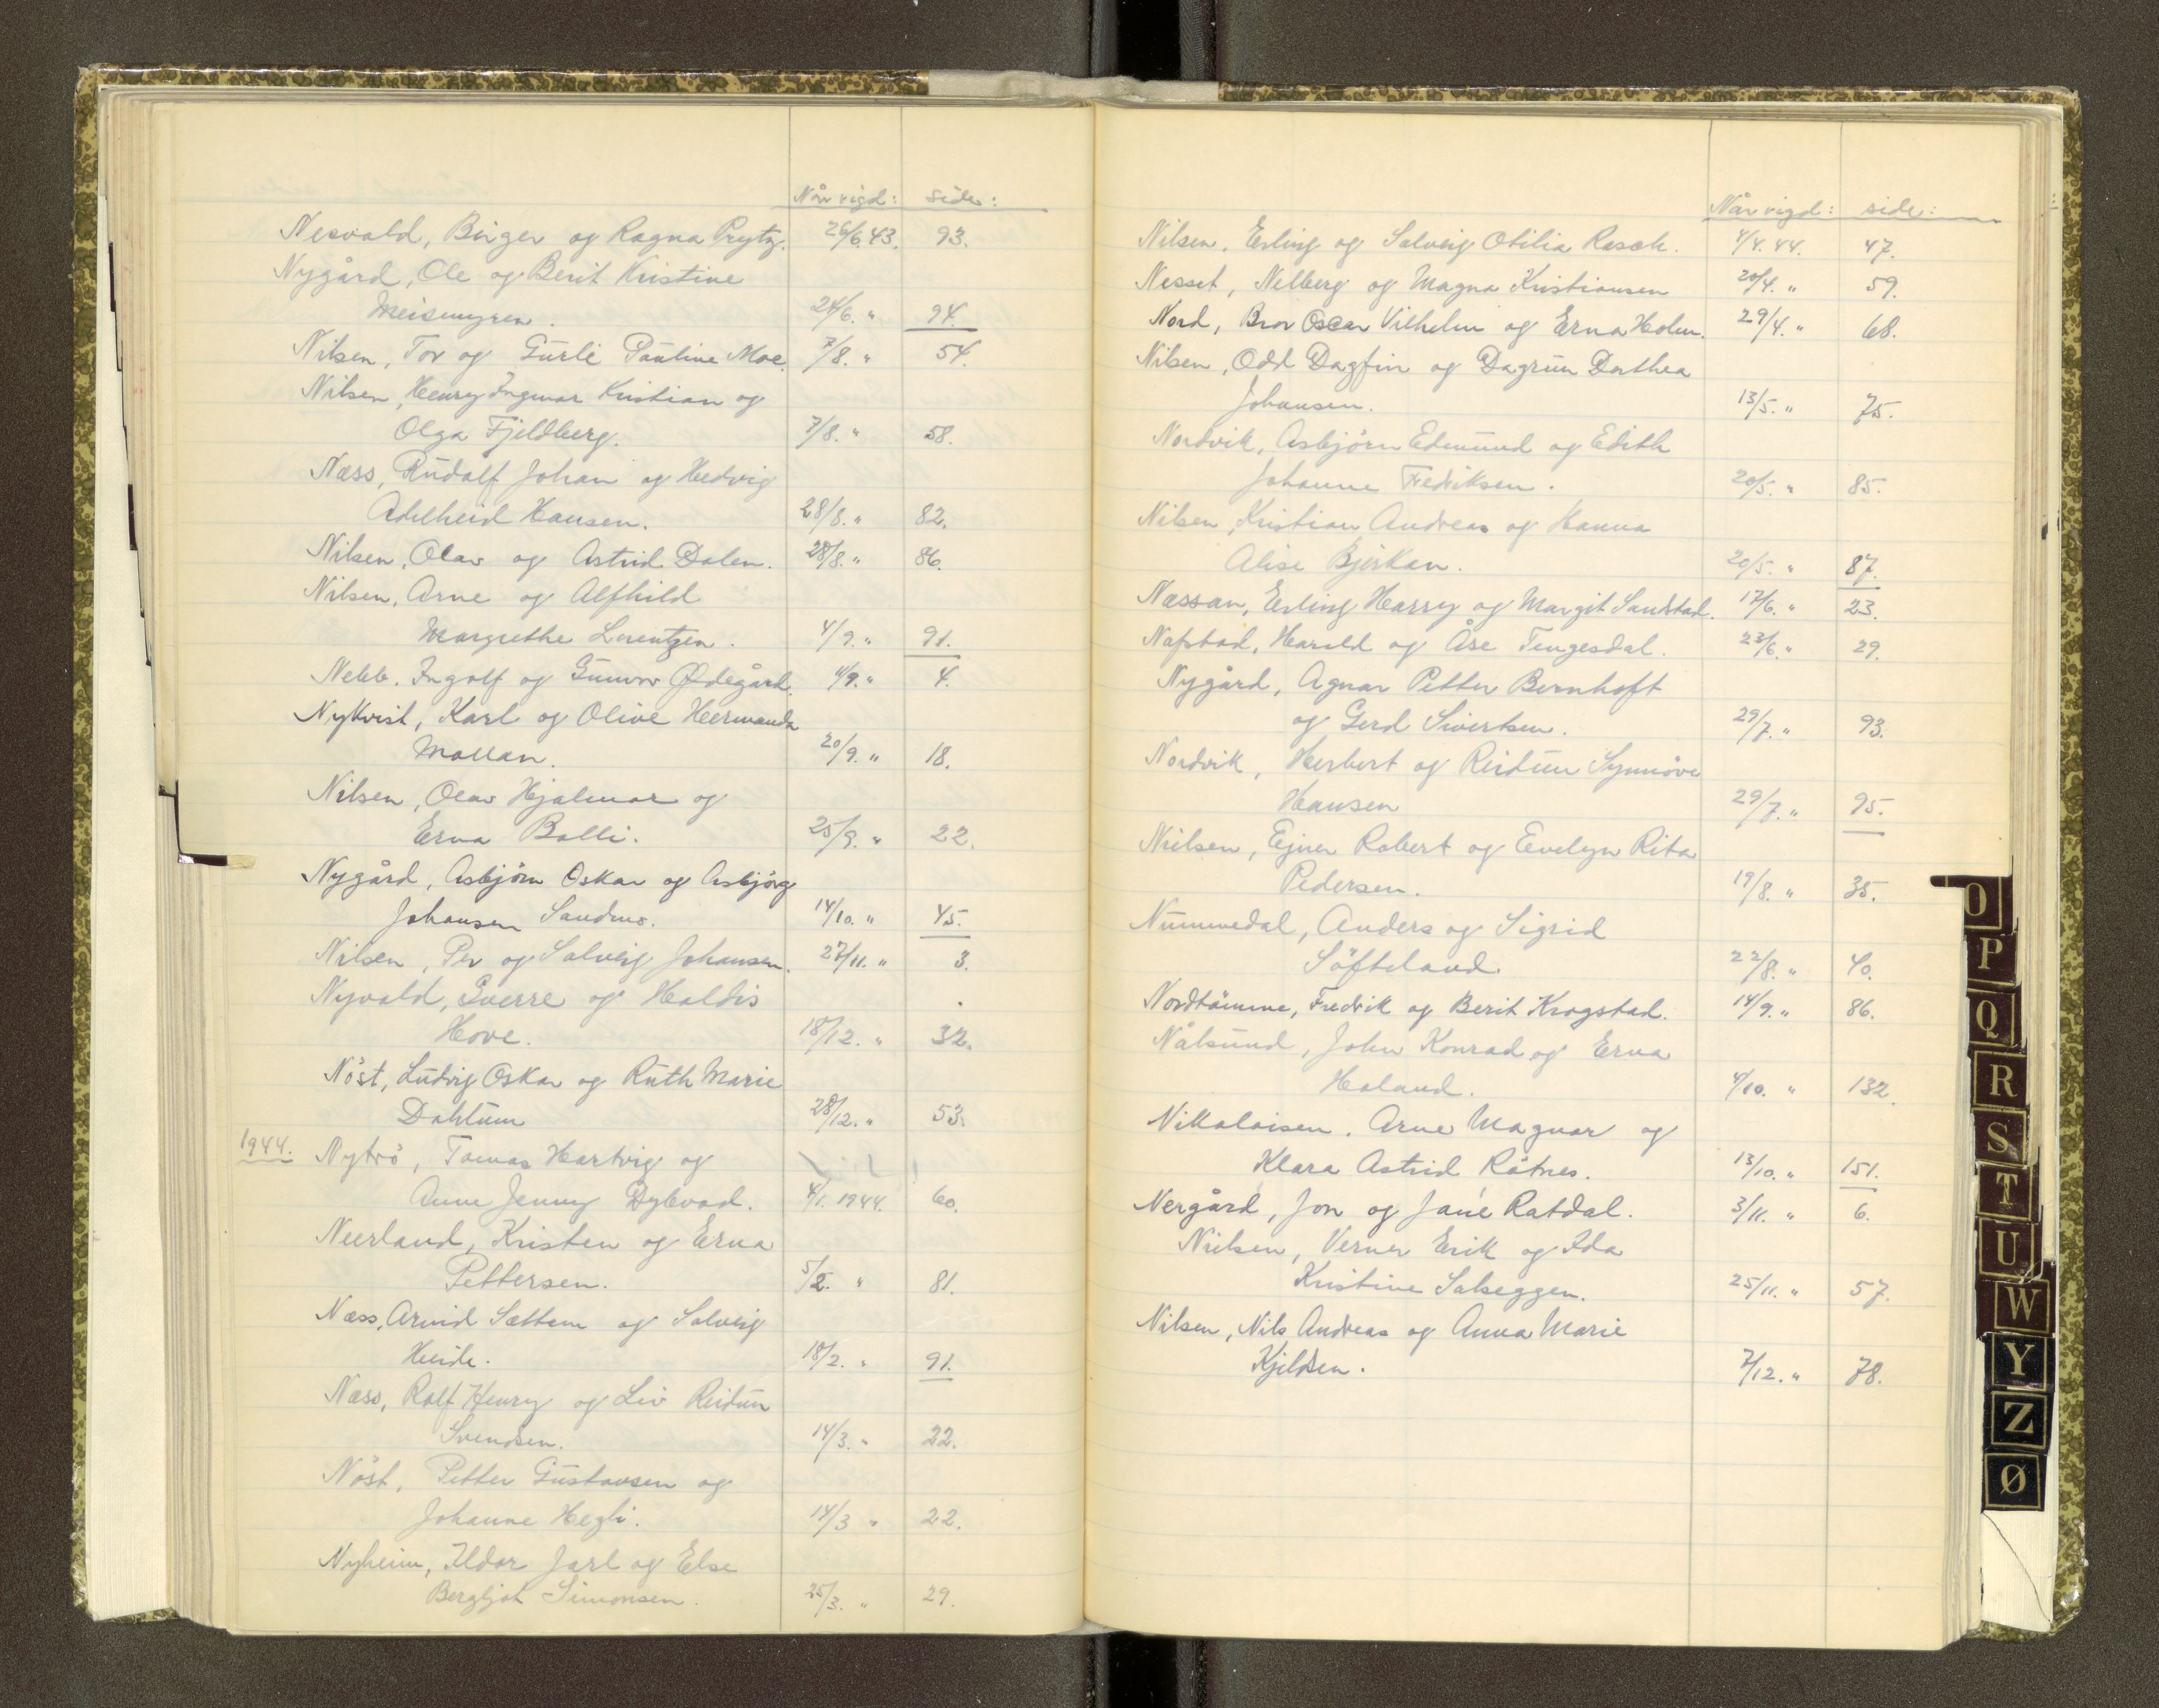 Når vigd: side:
Nesvold, Birger og Ragna Prytz. 26/6.43. 93.
Nygård, Ole og Berit Kristine
Meismyren. 24/6. " 94.
Nilsen, Tor og Gurli Pauline Moe. 7/8. " 54.
Nilsen, Henry Ingmar Kristian og
Olga Fjeldberg. 7/8. " 58.
Næss, Rudolf Johan og Hedvig
Adelheid Hansen. 28/8. " 82.
Nilsen, Olav og Astrid Dalen. 28/8. " 86.
Nilsen, Arne og Alfhild
Margrethe Lorentzen. 4/9. " 91.
Nebb. Ingolf og Gunvor Ødegård. 4/9. " 4.
Nykvist, Karl og Olive Hermanda
Mollan. 20/9. " 18.
Nilsen, Olav Hjalmar og
Erna Balli. 25/9. " 22.
Nygård, Asbjörn Oskar og Asbjörg
Johansen Sandmo. 14/10. " 45.
Nilsen, Per og Solveig Johansen. 27/11. " 3.
Nyvold, Sverre og Haldis
Hove. 18/12. " 32.
Nöst, Ludvig Oskar og Ruth Marie
Dahlum 28/12. " 53.
1944. Nytrö, Tomas Hartvig og
Anne Jenny Dybvad. 4/1. 1944. 60.
Neerland, Kristen og Erna
Pettersen. 5/2. " 81.
Næss, Arvid Sættem og Solveig
Heide. 18/2. " 91.
Næss, Rolf Henry og Liv Reidun
Svendsen. 14/3. " 22.
Nöst, Petter Gustavsen og
Johanne Hegli. 14/3 " 22.
Nyheim, Ildar Jarl og Else
Bergljot Simonsen. 25/3. " 29.
Når vigd: side:
Nilsen, Erling og Solveig Otilia Rasch. 4/4. 44. 47.
Nesset, Nelberg og Magna Kristiansen 20/4. " 59.
Nord, Bror Oscar Vilhelm og Erna Holm. 29/4. " 68.
Nilsen, Odd Dagfin og Dagrun Dorthea
Johansen. 13/5. " 75.
Nordvik, Asbjörn Edmund og Edith
Johanne Fredriksen. 20/5. " 85.
Nilsen, Kristian Andreas og Hanna
Alise Bjerkan. 20/5. " 87.
Næssan, Erling Harry og Margit Sandstad. 17/6. " 23.
Nafstad, Harald og Åse Tengesdal. 23/6. " 29.
Nygård, Agnar Petter Bernhoft
og Gerd Sivertsen. 29/7. " 93.
Nordvik, Herbert og Reidun Synnöve
Hansen 29/7. " 95.
Nielsen, Ejner Robert og Evelyn Rita
Pedersen. 19/8. " 35.
Nummedal, Anders og Sigrid
Söfteland. 22/8. " 40.
Nordtömme, Fredrik og Berit Krogstad. 14/9. " 86.
Nålsund, John Konrad og Erna
Holand. 4/10. " 132.
Nikolaisen. Arne Magnar og
Klara Astrid Rötnes. 13/10. " 151.
Nergård, Jon og Jane Ratdal. 3/11. " 6.
Nielsen, Verner Erik og Ida
Kristine Salseggen. 25/11. " 57.
Nilsen, Nils Andreas og Anna Marie
Kjeldsen. 7/12. " 78.
O
P
Q
R
S
T
U
W
Y
Z
Ø